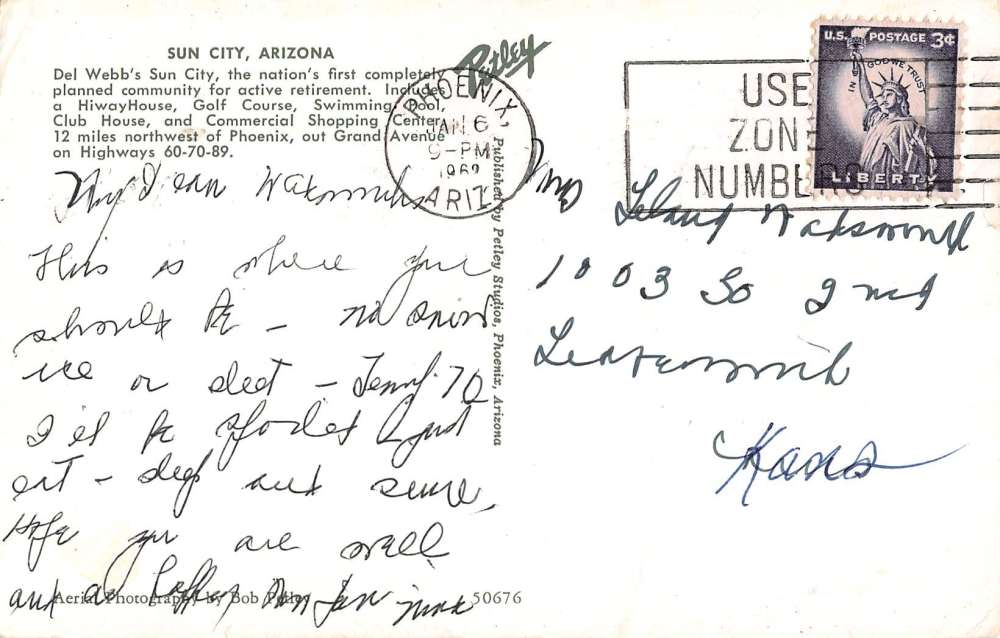 SUN CITY, ARIZONA
Del Webb's Sun City, the nation's first completely
planned community for active retirement. Includes
a HiwayHouse, Golf Course, Swimming Pool,
Club House, and Commercial Shopping Center,
12 miles northwest of Phoenix, out Grand Avenue
on Highways 60-70-89.
Petley
PHOENIX,
JAN 6
9-PM
1962
ARIZ
USE
ZON
NUMBERS
U.S. POSTAGE 3¢
IN GOD WE TRUST
LIBERTY
My Dear
This is where you
should be - no snow
ice or sleet - Temp. 70
I'll be spoiled just
eat - sleep and
Hope you are well
and as
Published by Petley Studios, Phoenix, Arizona
Mrs
Leland Wadsworth
1003 So 2nd
Leavenworth
Kans
Aerial Photography by Bob Petley
50676